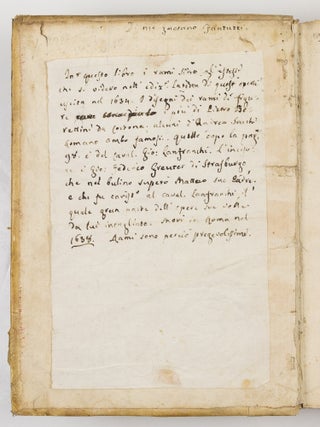 Di me Gaetano
In questo libro i rami sono gl'istessi
che si videro nell'ediz. Latina di questo
uscita nel 1634. I disegni dei rami di figu-
re sono di Pietro Be-
rettini da Cortona, alunni d'Andrea Sacchi
romano ambo famosi, quello dopo la pag.
97. è del caval. Gio: Lanfranchi. L'inciso-
re è Gio: Federico Greuter di Strasburgo,
che nel bulino superò Matteo suo Padre,
e che fu al caval. Lanfranchi, il
quale gran parte dell'opere sue volle
da lui Morì in Roma nel
1638. Rami sono perciò pregevolissimi.